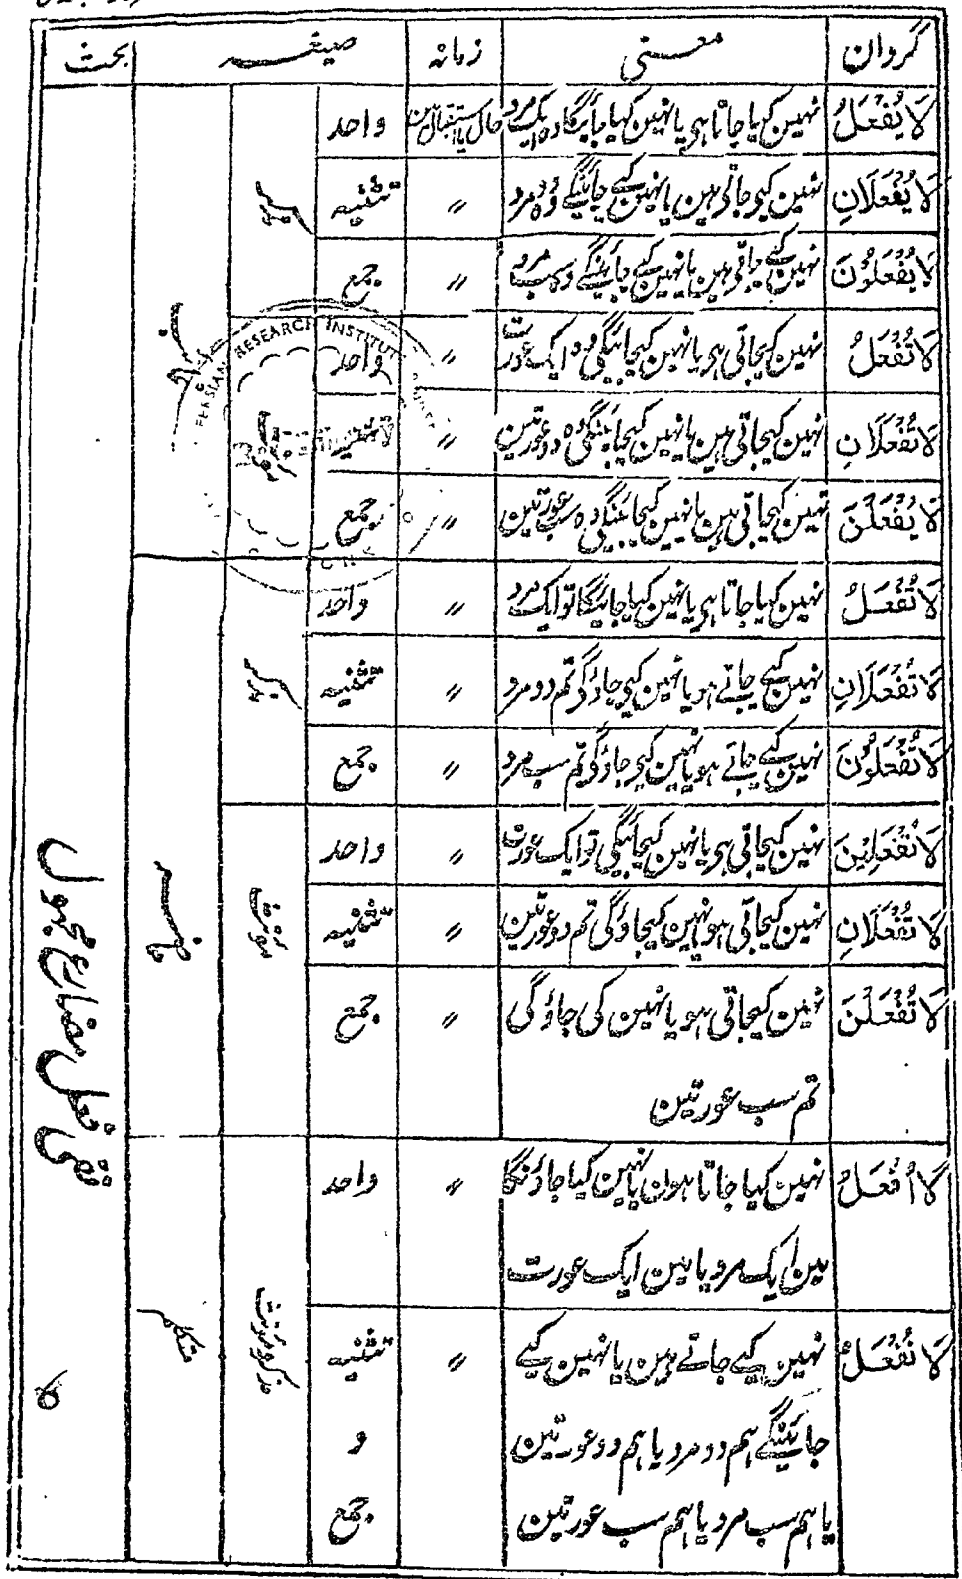 گردان معنی زمانہ صیغہ بحث
لَا یُفْعَلُ نہین کیا جاتا ہی یا نہین کیا جائیگا وہ ایک مرد حال یا استقبال مین واحد مذکر غائب نفی فعل مضارع مجہول
لَا یُفْعَلَانِ نہین کیے جاتے ہین یا نہین کیے جائینگے وہ دو مرد 〃 تثنیہ
لَا یُفْعَلُوْنَ نہین کیے جاتے ہین یا نہین کیے جائینگے وہ سب مرد 〃 جمع
لَا تُفْعَلُ نہین کیجاتی ہی یا نہین کیجائیگی وہ ایک عورت 〃 واحد مؤنث
لَا تُفْعَلَانِ نہین کیجاتی ہین یا نہین کیجائینگی وہ دو عورتین 〃 تثنیہ
لَا یُفْعَلْنَ نہین کیجاتی ہین یا نہین کیجائینگی وہ سب عورتین 〃 جمع
لَا تُفْعَلُ نہین کیا جاتا ہی یا نہین کیا جائیگا تو ایک مرد 〃 واحد مذکر حاضر
لَا تُفْعَلَانِ نہین کیے جاتے ہو یا نہین کیے جاؤگے تم دو مرد 〃 تثنیہ
لَا تُفْعَلُوْنَ نہین کیے جاتے ہو یا نہین کیے جاؤگے تم سب مرد 〃 جمع
لَا تُفْعَلِیْنَ نہین کیجاتی ہی یا نہین کیجائیگی تو ایک عورت 〃 واحد مؤنث
لَا تُفْعَلَانِ نہین کیجاتی ہو یا نہین کیجاؤگی تم دو عورتین 〃 تثنیہ
لَا تُفْعَلْنَ نہین کیجاتی ہو یا نہین کی جاؤگی 〃 جمع
تم سب عورتین
لَا اُفْعَلُ نہین کیا جاتا ہون یا نہین کیا جاؤنگا 〃 واحد مذکر و مؤنث متکلم
مین ایک مرد یا مین ایک عورت
لَا نُفْعَلُ نہین کیے جاتے ہین یا نہین کیے 〃 تثنیہ
جائینگے ہم دو مرد یا ہم دو عورتین و
یا ہم سب مرد یا ہم سب عورتین جمع
PERSIAN RESEARCH INSTITUTE